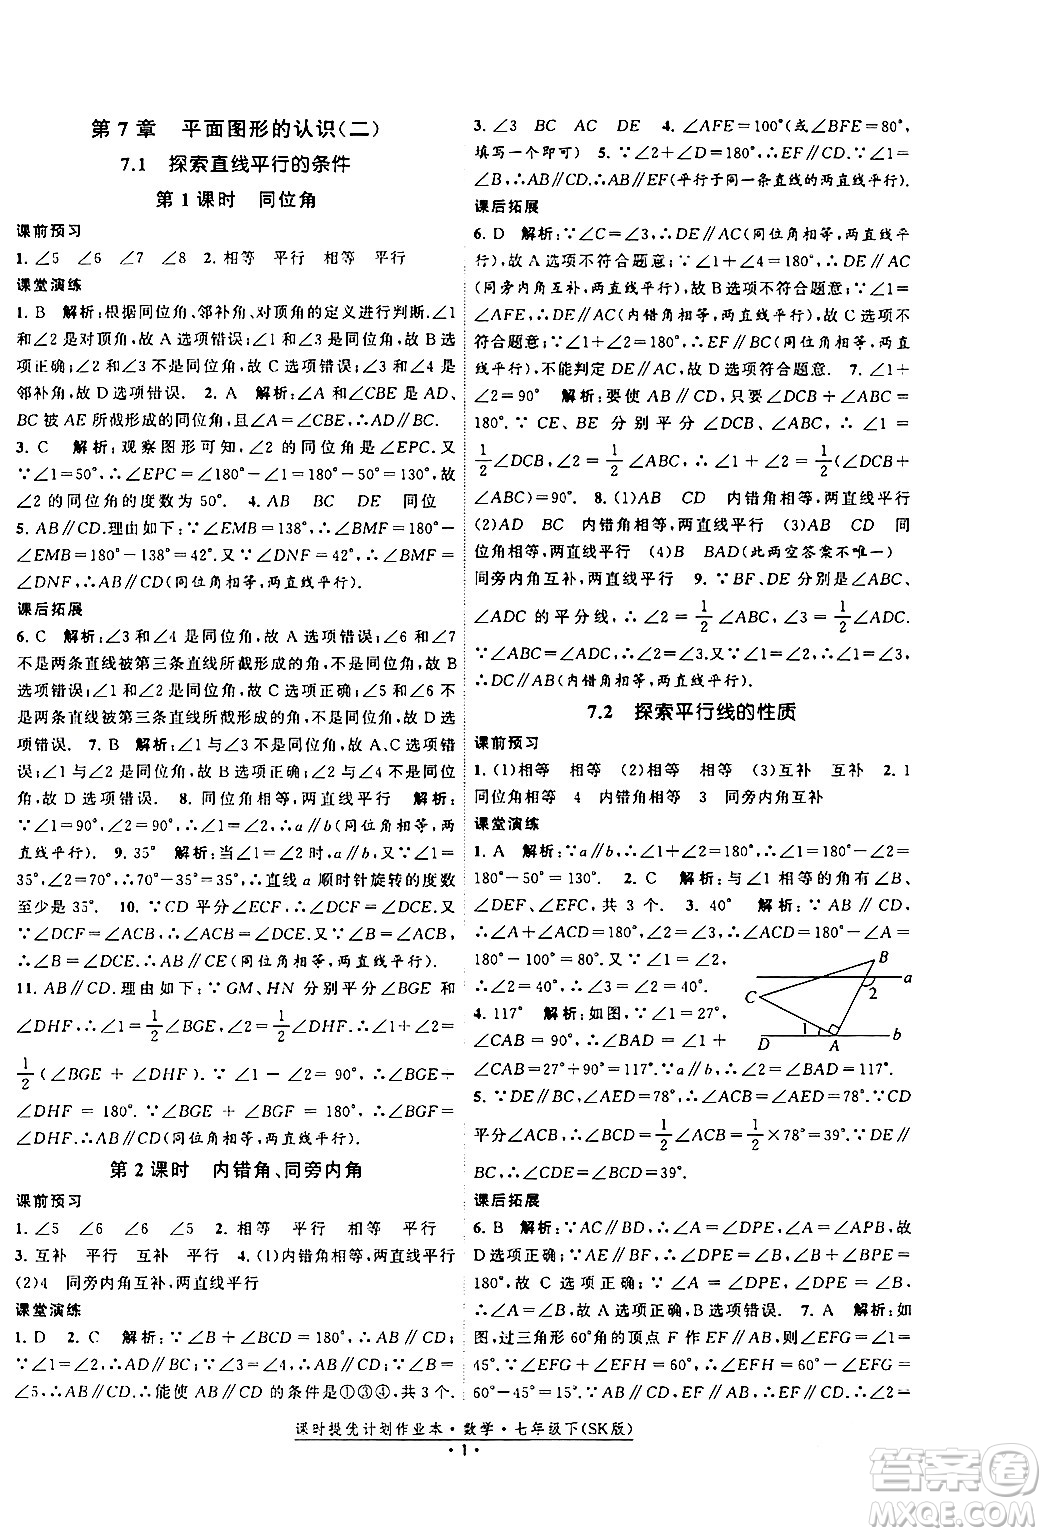 第 7 章　平面图形的认识(二)
7.1　探索直线平行的条件
第 1 课时　同位角
课前预习
1. ∠5　∠6　∠7　∠8　2. 相等　平行　平行
课堂演练
1. B　解析:根据同位角、邻补角、对顶角的定义进行判断.∠1
和∠2是对顶角,故 A 选项错误;∠1和∠3是同位角,故 B 选
项正确;∠1和∠4是内错角,故 C 选项错误;∠1和∠5是
邻补角,故 D 选项错误.　2. A　解析:∠A 和∠CBE 是 AD,
BC 被 AE 所截形成的同位角,∠A=∠CBE,∴AD∥BC.
3. C　解析:观察图形可知,∠2的同位角是∠EPC.又
∵∠1=50°,∴∠EPC=180°-∠1=180°-50°=130°,故
∠2的同位角的度数为 50°.　4. AB　BC　DE　同位
5. AB∥CD.理由如下:∵∠EMB=138°,∴∠BMF=180°-
∠EMB=180°-138°=42°.又∵∠DNF=42°,∴∠BMF=
∠DNF,∴AB∥CD(同位角相等,两直线平行).
课后拓展
6. C　解析:∠3和∠4是同位角,故 A 选项错误;∠6和∠7
不是两条直线被第三条直线所截形成的角,故 B
选项错误;∠1和∠2是同位角,故 C 选项正确;∠1和∠6不
是两条直线被第三条直线所截形成的角,故 D
选项错误.　7. B　解析:∠1和∠2不是同位角,故 A、C 选项
错误,D 选项错误.　8. 同位角相等,两直线平行　解析:
∵∠1=90°,∠2=90°,∴∠1=∠2,∴a∥b(同位角相等,两直线平
行).　9. 35°　解析:当∠2=∠1时,a∥b,此时∠1=
35°,∠2=70°,∴70°-35°=35°,∴直线 a 顺时针旋转的度数
至少是35°.　10. ∵CD 平分∠ECF,∴∠DCE=∠DCF.
∵∠DCF=∠ACB,∴∠DCE=∠ACB.又∵∠B=∠ACB,
∴∠B=∠DCE.∴AB∥CE(同位角相等,两直线平行).
11. AB∥CD.理由如下:∵GM、HN 分别平分∠BGE 和
∠DHF,∴∠1=1/2∠BGE,∠2=1/2∠DHF.∴∠1+∠2=
1/2(∠BGE + ∠DHF).∵∠1 + ∠2 = 90°,∴∠BGE +
∠DHF = 180°.∵∠BGE + ∠BGF = 180°,∴∠BGF =
∠DHF,∴AB∥CD(同位角相等,两直线平行).
第 2 课时　内错角、同旁内角
课前预习
1. ∠5　∠6　∠6　∠5　2. 相等　平行　相等　平行
3. 互补　平行　互补　平行　4. (1)内错角相等,两直线平行
(2)4　同旁内角互补,两直线平行
课堂演练
1. D　2. C　解析:∵∠B+∠BCD=180°,∴AB∥CD;
∵∠1=∠2,∴AD∥BC;∵∠3=∠4,∴AB∥CD;∵∠B=
∠5,∴AB∥CD.∴能使 AB∥CD 的条件是①③④,共 3 个.
3. ∠3　BC　AC　DE　4. ∠AFE=100°(或∠BFE=80°,
填写一个即可)　5. ∵∠2+∠D=180°,∴EF∥CD.∵∠1=
∠B,∴AB∥EF.∴AB∥CD(平行于同一条直线的两直线平行).
课后拓展
6. D　解析:∵∠C=∠3,∴DE∥AC(同位角相等,两直线平
行),故 A 选项不符合题意;∵∠1+∠4=180°,∴DE∥AC
(同旁内角互补,两直线平行),故 B 选项不符合题意;∵∠1=
∠AFE,∴DE∥AC(内错角相等,两直线平行),故 C 选项不符
合题意;∵∠1+∠2=180°,∴EF∥BC(同旁内角互补,两直
线平行),不能判定 DE∥AC,故 D 选项符合题意.　7. ∠1+
∠2=90°　解析:要使 AB∥CD,只要∠DCB+∠ABC=
180°.∵CE、BE 分别平分∠DCB、∠ABC,∴∠1+∠2=
1/2∠DCB+1/2∠ABC,∴∠1+∠2=1/2×180°=1/2(∠DCB+
∠ABC)=90°.　8. (1)AB　CD　内错角相等,两直线平行
(2)AD　BC　内错角相等,两直线平行　(3)AB　CD　同
位角相等,两直线平行　(4)B　BAD(此两空答案不唯一)
同旁内角互补,两直线平行　9. ∵BF、DE 分别是∠ABC、
∠ADC 的平分线,∴∠2=1/2∠ABC,∠3=1/2∠ADC.
∵∠ABC=∠ADC,∴∠2=∠3.∵∠1=∠2,∴∠1=∠3.
∴DC∥AB(内错角相等,两直线平行).
7.2　探索平行线的性质
课前预习
1. (1)相等　相等　(2)相等　相等　(3)互补　互补　2. 1
同位角相等　4　内错角相等　3　同旁内角互补
课堂演练
1. A　解析:∵a∥b,∴∠1+∠2=180°.∵∠1=50°,∴∠2=
180°-50°=130°.　2. C　解析:与∠1相等的角有∠B、
∠DEF、∠EFC,共 3 个.　3. 40°　解析:∵AB∥CD,
∴∠A+∠ACD=180°.∵∠A=100°,∴∠ACD=
180°-100°=80°.又∵∠1=∠2,
∴∠2=40°,∴∠1=∠2=40°.
4. 117°　解析:如图,∵∠1=27°,
∠CAB=90°,∴∠BAD=∠1+
∠CAB=27°+90°=117°.∵a∥b,∴∠2=∠BAD=117°.
5. ∵DE∥BC,∠AED=78°,∴∠ACB=∠AED=78°.∵CD
平分∠ACB,∴∠BCD=1/2∠ACB=1/2×78°=39°.∵DE∥
BC,∴∠EDC=∠BCD=39°.
课后拓展
6. B　解析:∵AC∥BD,∴∠A=∠DPE,∠A=∠APB,故
D 选项正确;∵AE∥BF,∴∠B=∠DPE,∠B+∠APB=
180°,故 C 选项正确;∵∠A=∠DPE,∠B=∠DPE,
∴∠A=∠B,故 A 选项正确,B 选项错误.　7. A　解析:如
图,过三角形 60°角的顶点 F 作 EF∥AB,则∠EFA=∠1=
45°.∵∠EFA+∠EFH=60°,∴∠EFH=60°-∠EFA=
60°-45°=15°.∵CD∥AB,∴EF∥CD,∴∠2=∠EFH=
C
B
a
2
1
D
A
b
课时提优计划作业本·数学·七年级下(SK版)
· 1 ·
答案圈
MXQE.COM